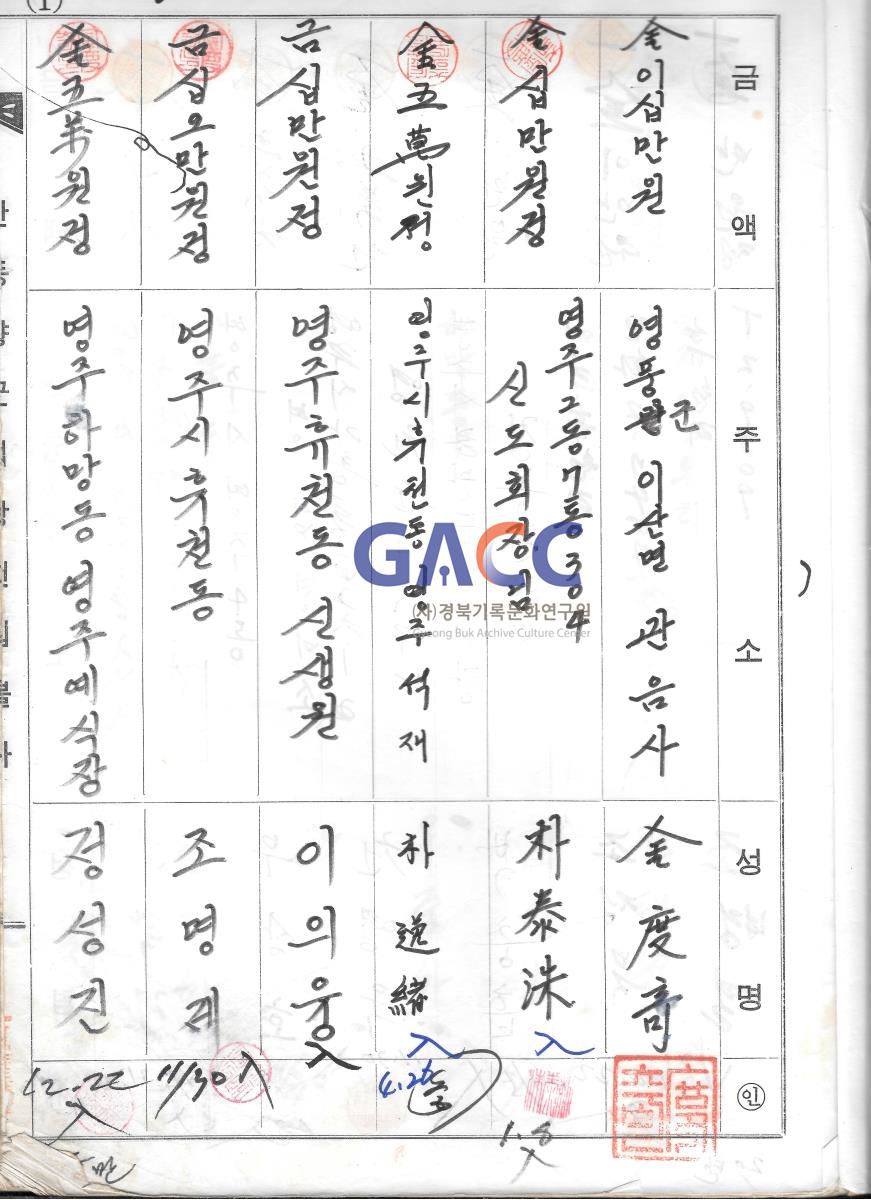 (1)
금액
주소
성명
㊞
金이십만원
영풍군 이산면 관음사
金度奇
金십만원정
영주2동 7통 304
신도회장님
朴泰洙 入
1.8 入
金五萬원정
영주시 휴천동 영주석재
朴道緖 入
4.26
금십만원정
영주휴천동 신생원
이의웅 入
금십오만원정
영주시 휴천동
조명제
11/30 入
金五万원정
영주하망동 영주예식장
정성진
12.22 入
GACC
(사)경북기록문화연구원
Gyeong Buk Archive Culture Center